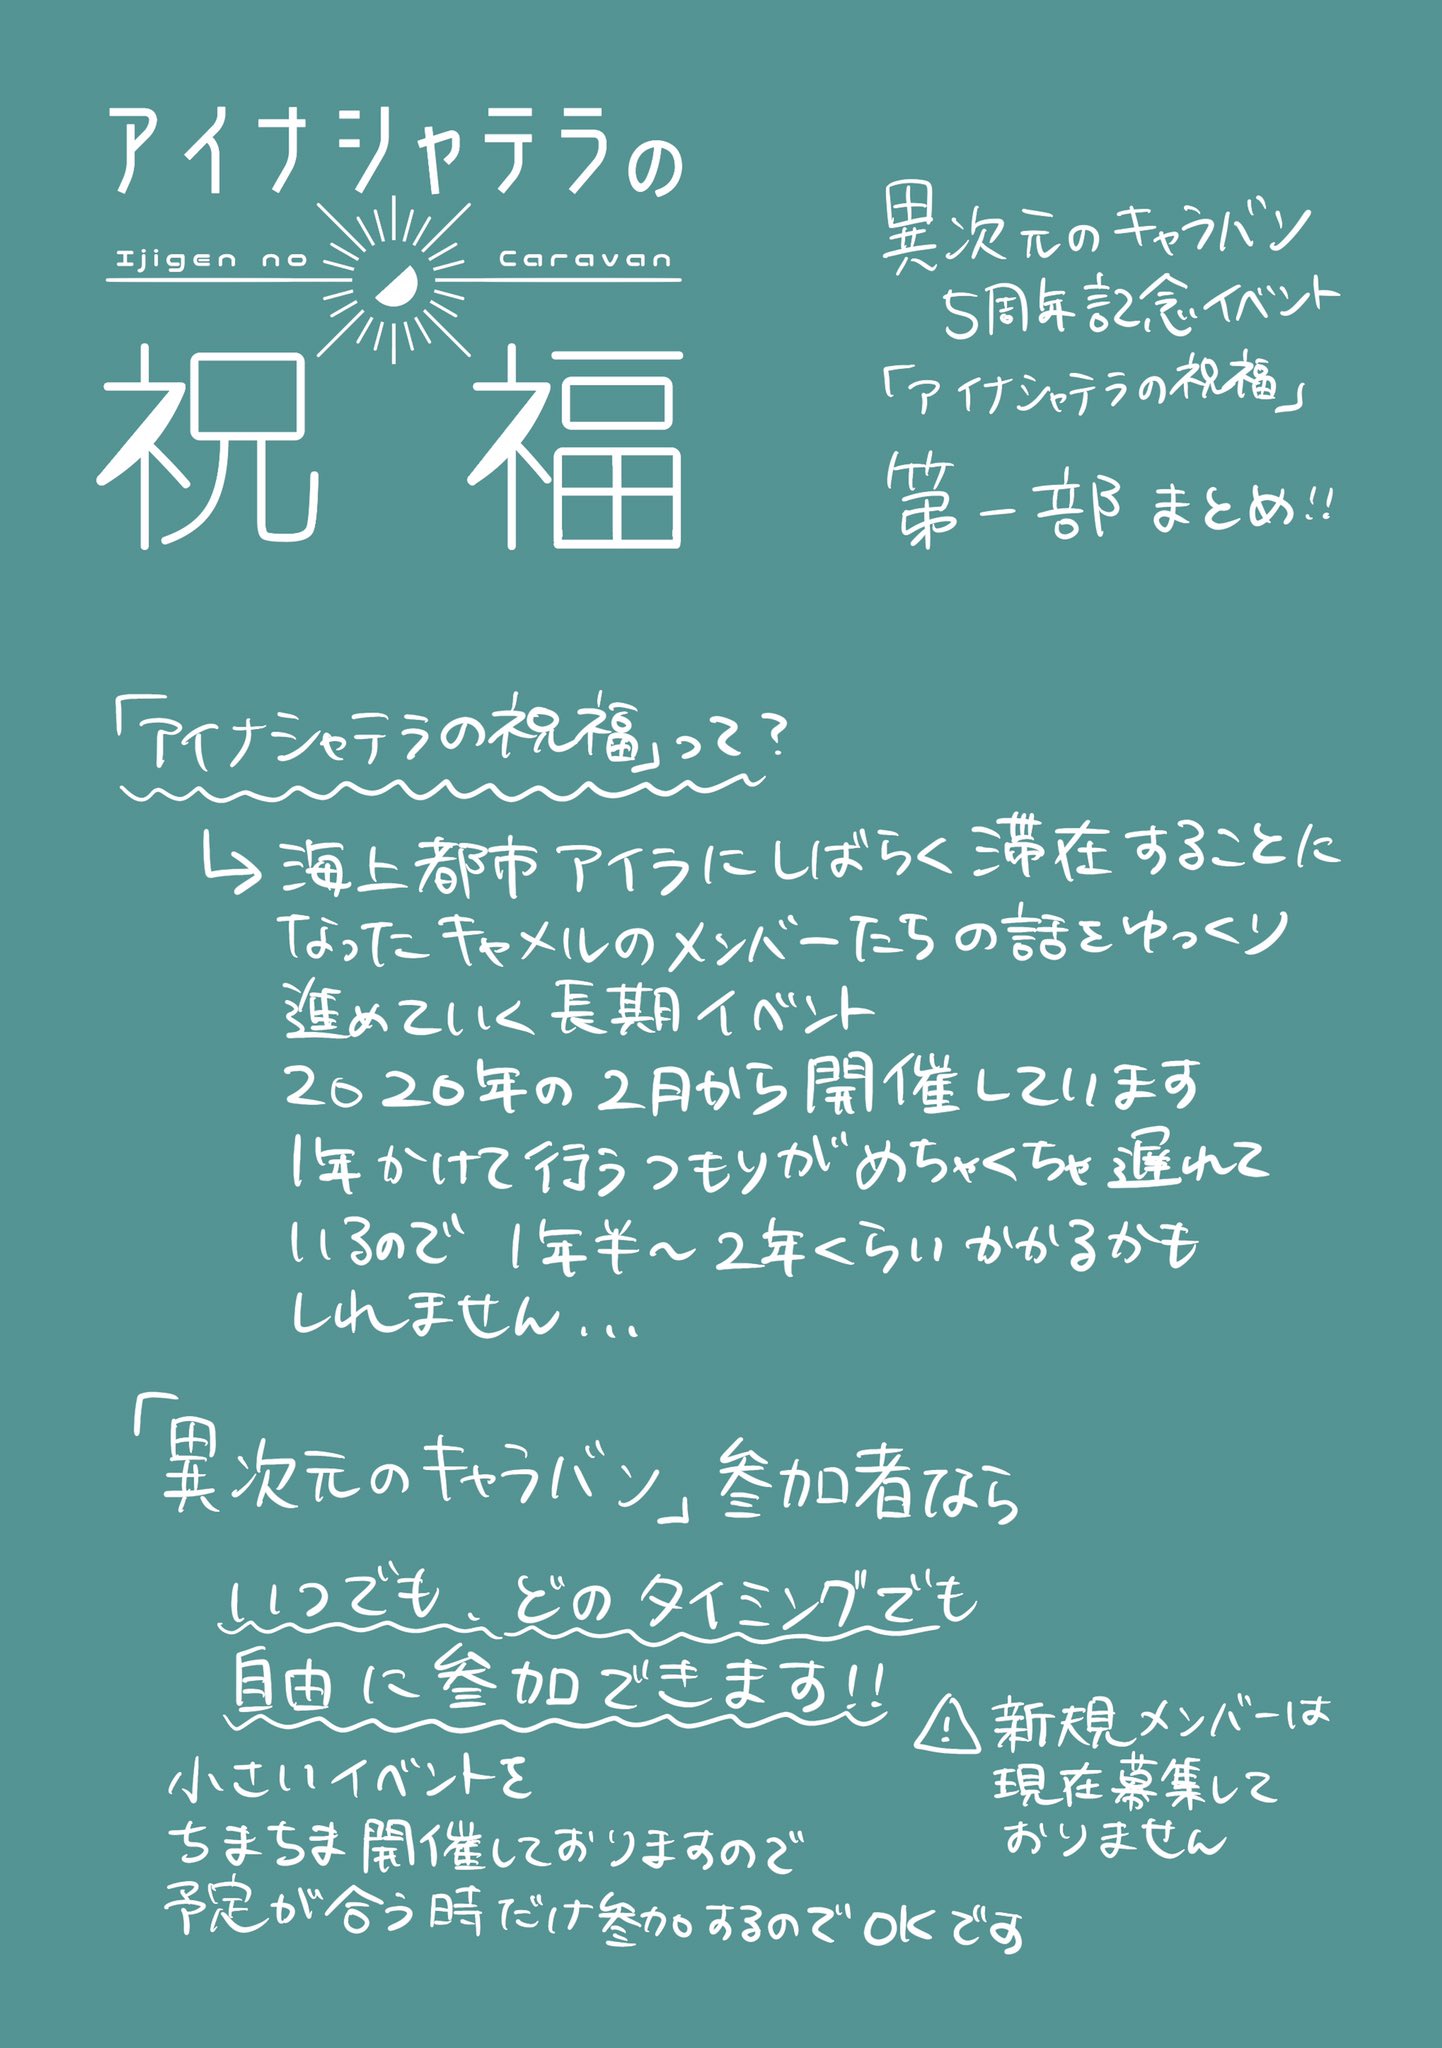 アイナシャテラの
Ijigen no Caravan
祝福
異次元のキャラバン
5周年記念イベント
「アイナシャテラの祝福」
第一部まとめ!!
「アイナシャテラの祝福」って?
↳海上都市アイラにしばらく滞在することに
なったキャメルのメンバーたちの話をゆっくり
進めていく長期イベント
2020年の2月から開催しています
1年かけて行うつもりがめちゃくちゃ遅れて
いるので 1年半～2年くらいかかるかも
しれません...
「異次元のキャラバン」参加者なら
いつでも、どのタイミングでも
自由に参加できます!!
小さいイベントを
ちまちま開催しておりますので
予定が合う時だけ参加するのでOKです
⚠新規メンバーは
現在募集して
おりません